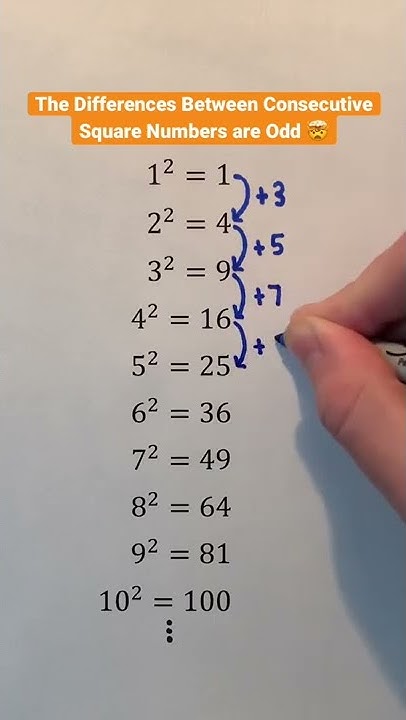 The Differences Between Consecutive
Square Numbers are Odd 🤯
1² = 1
+3
2² = 4
+5
3² = 9
+7
4² = 16
+
5² = 25
6² = 36
7² = 49
8² = 64
9² = 81
10² = 100
⋮